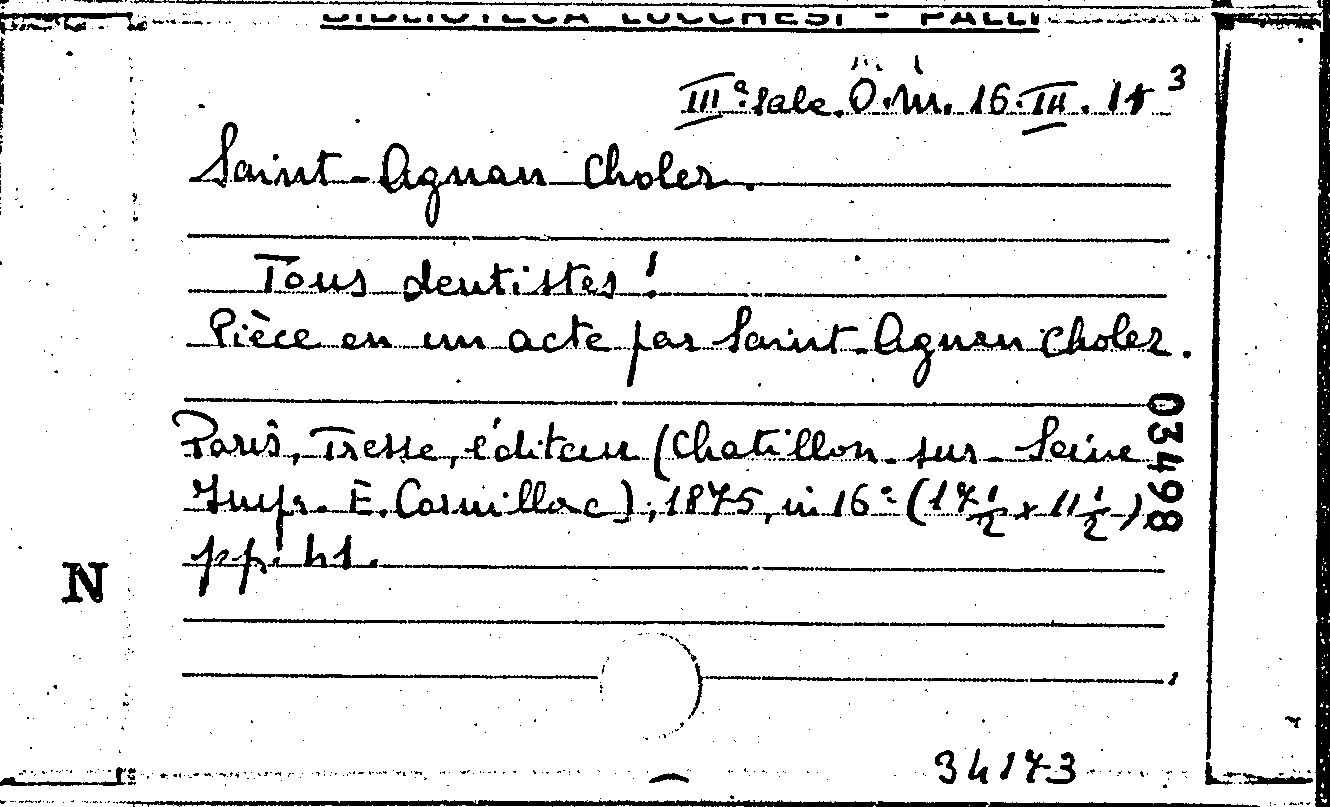 BIBLIOTECA LUCCHESI - PALLI
IIIª Sala. O. M. 16. III. 14 3
Saint-Agnan Choler.
Tous dentistes!
Pièce en un acte par Saint-Agnan Choler.
Paris, Tresse, éditeur (Chatillon-sur-Seine
Impr. E. Cornillac), 1875, in 16º (17½ x 11½)
pp. 41.
03498
N
34173